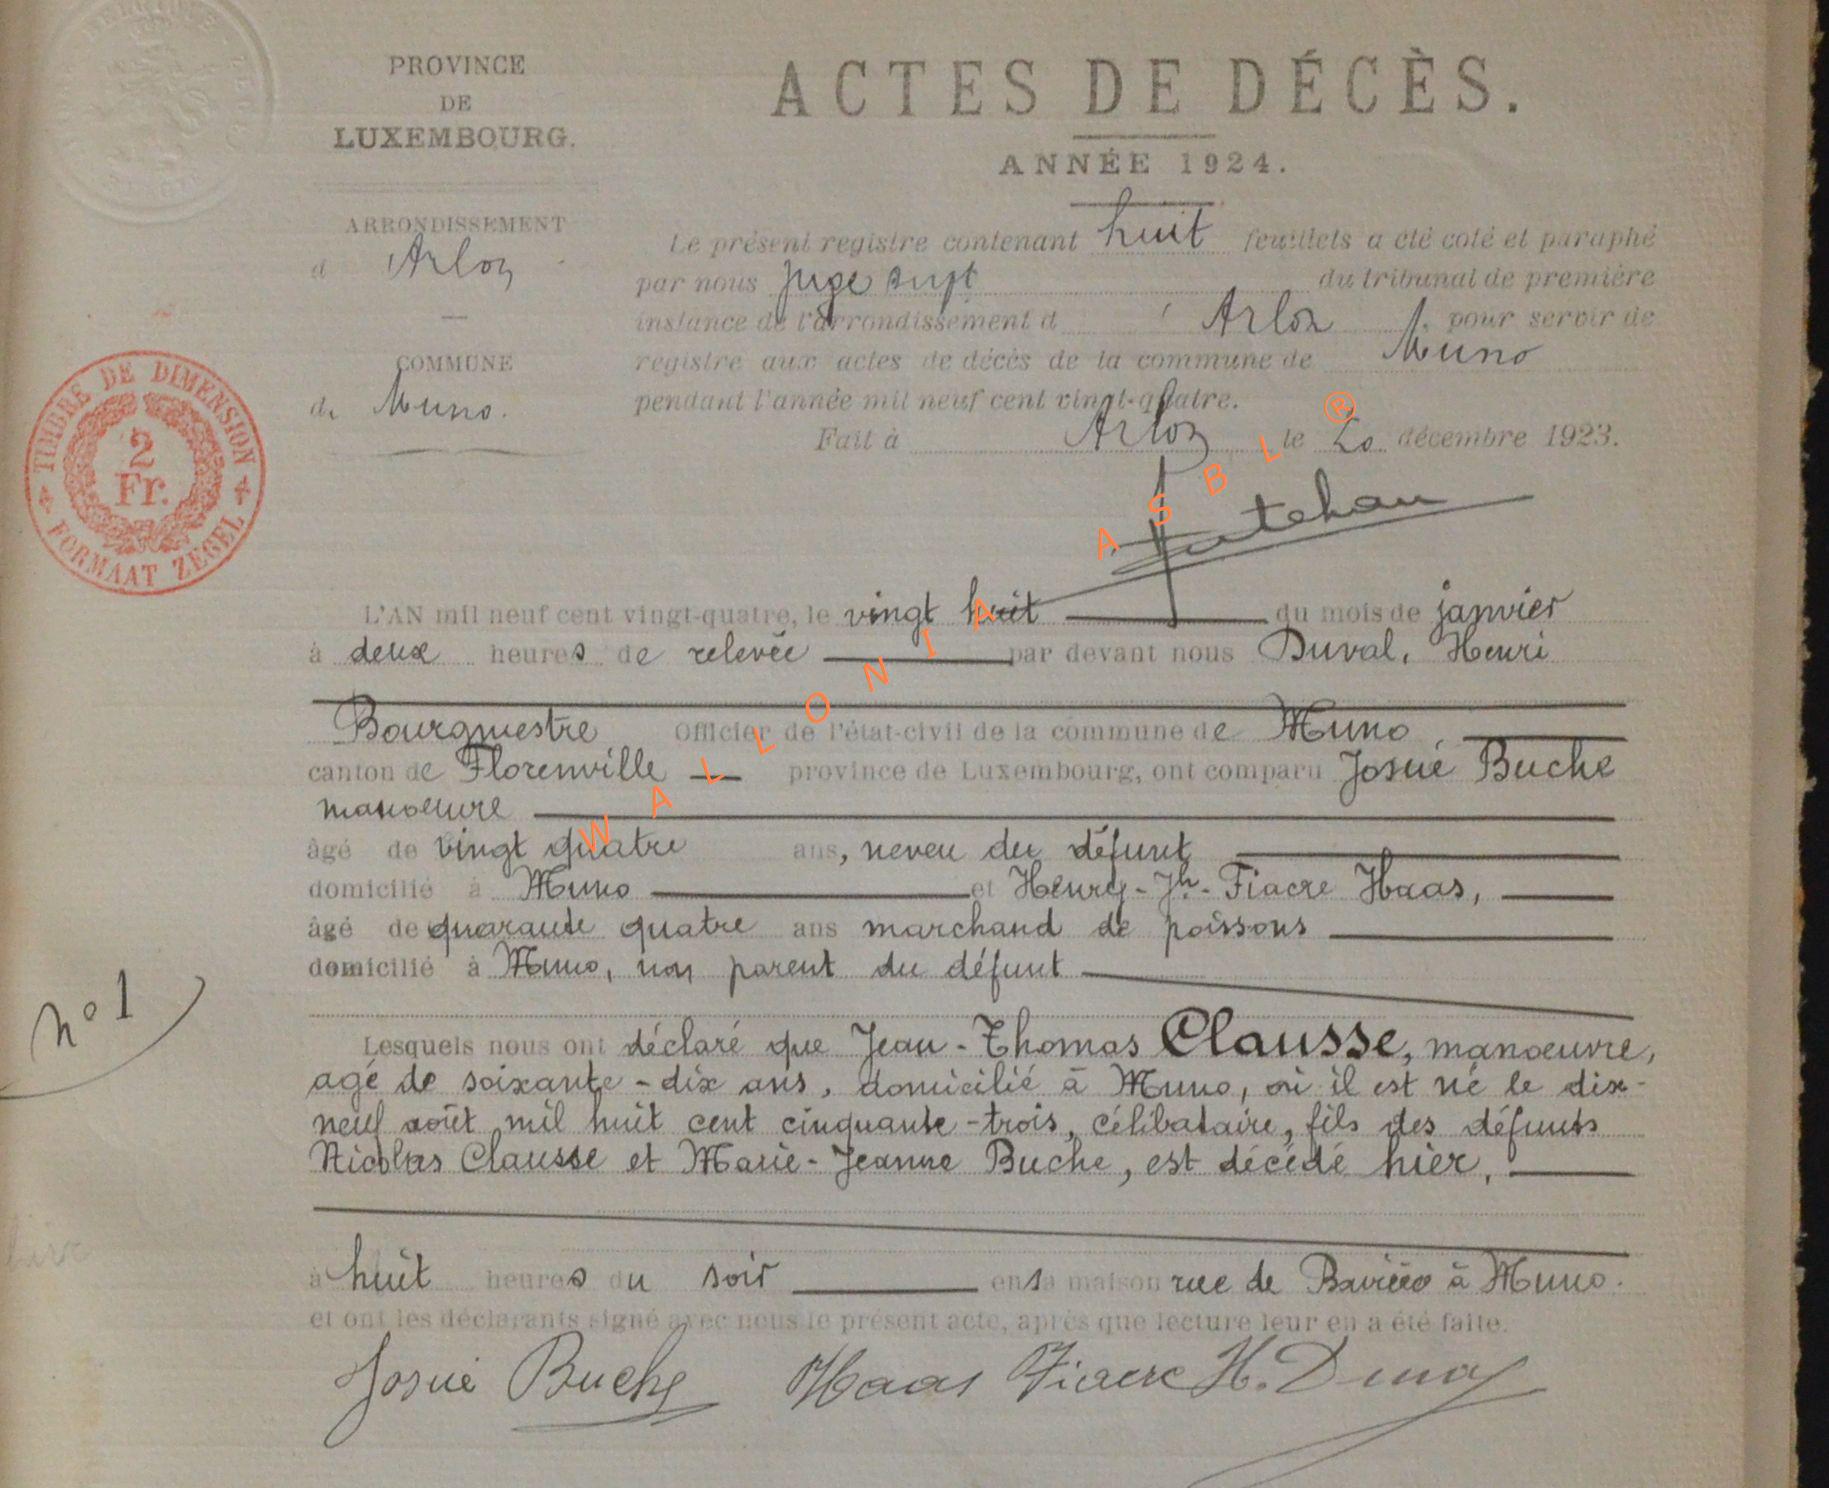 PROVINCE
DE
LUXEMBOURG.
ARRONDISSEMENT
d Arlon
COMMUNE
de Muno.
TIMBRE DE DIMENSION
2
Fr.
FORMAAT ZEGEL
ACTES DE DÉCÈS.
ANNÉE 1924.
Le présent registre contenant huit feuillets a été coté et paraphé
par nous juge supt du tribunal de première
instance de l'arrondissement d' Arlon, pour servir de
registre aux actes de décès de la commune de Muno
pendant l'année mil neuf cent vingt-quatre.
Fait à Arlon, le 20 décembre 1923.
WALLONIA ASBL®
L'AN mil neuf cent vingt-quatre, le vingt huit du mois de janvier
à deux heures de relevée par devant nous Duval, Henri
Bourgmestre Officier de l'état-civil de la commune de Muno,
canton de Florenville province de Luxembourg, ont comparu Josué Buche
manoeuvre
âgé de vingt quatre ans, neveu du défunt
domicilié à Muno et Henry-Jh-Fiacre Haas,
âgé de quarante quatre ans marchand de poissons
domicilié à Muno, non parent du défunt
n° 1
Lesquels nous ont déclaré que Jean-Thomas Clausse, manoeuvre,
agé de soixante-dix ans, domicilié à Muno, où il est né le dix-
neuf août mil huit cent cinquante-trois, célibataire, fils des défunts
Nicolas Clausse et Marie-Jeanne Buche, est décédé hier,
à huit heures du soir en sa maison rue de à Muno.
et ont les déclarants signé avec nous le présent acte, après que lecture leur en a été faite.
Josué Buche Haas Fiacre H. Duval